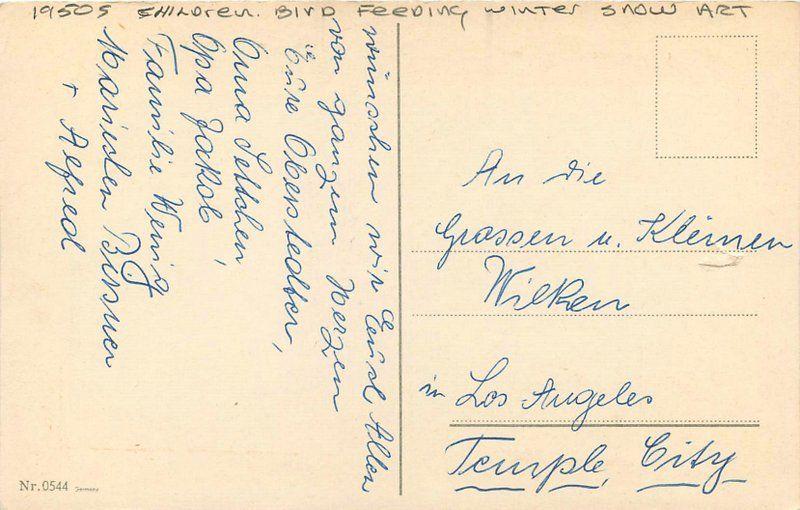 1950s CHILDREN. BIRD FEEDING WINTER SNOW ART
wünschen wir Euch Allen
von ganzem Herzen
Eure Oberstedter,
Oma Settchen,
Opa Jakob,
Familie Wenig
Mariechen
+ Alfred
An die
Grossen u. Kleinen
Wilken
in Los Angeles
Temple City
Nr. 0544 Germany